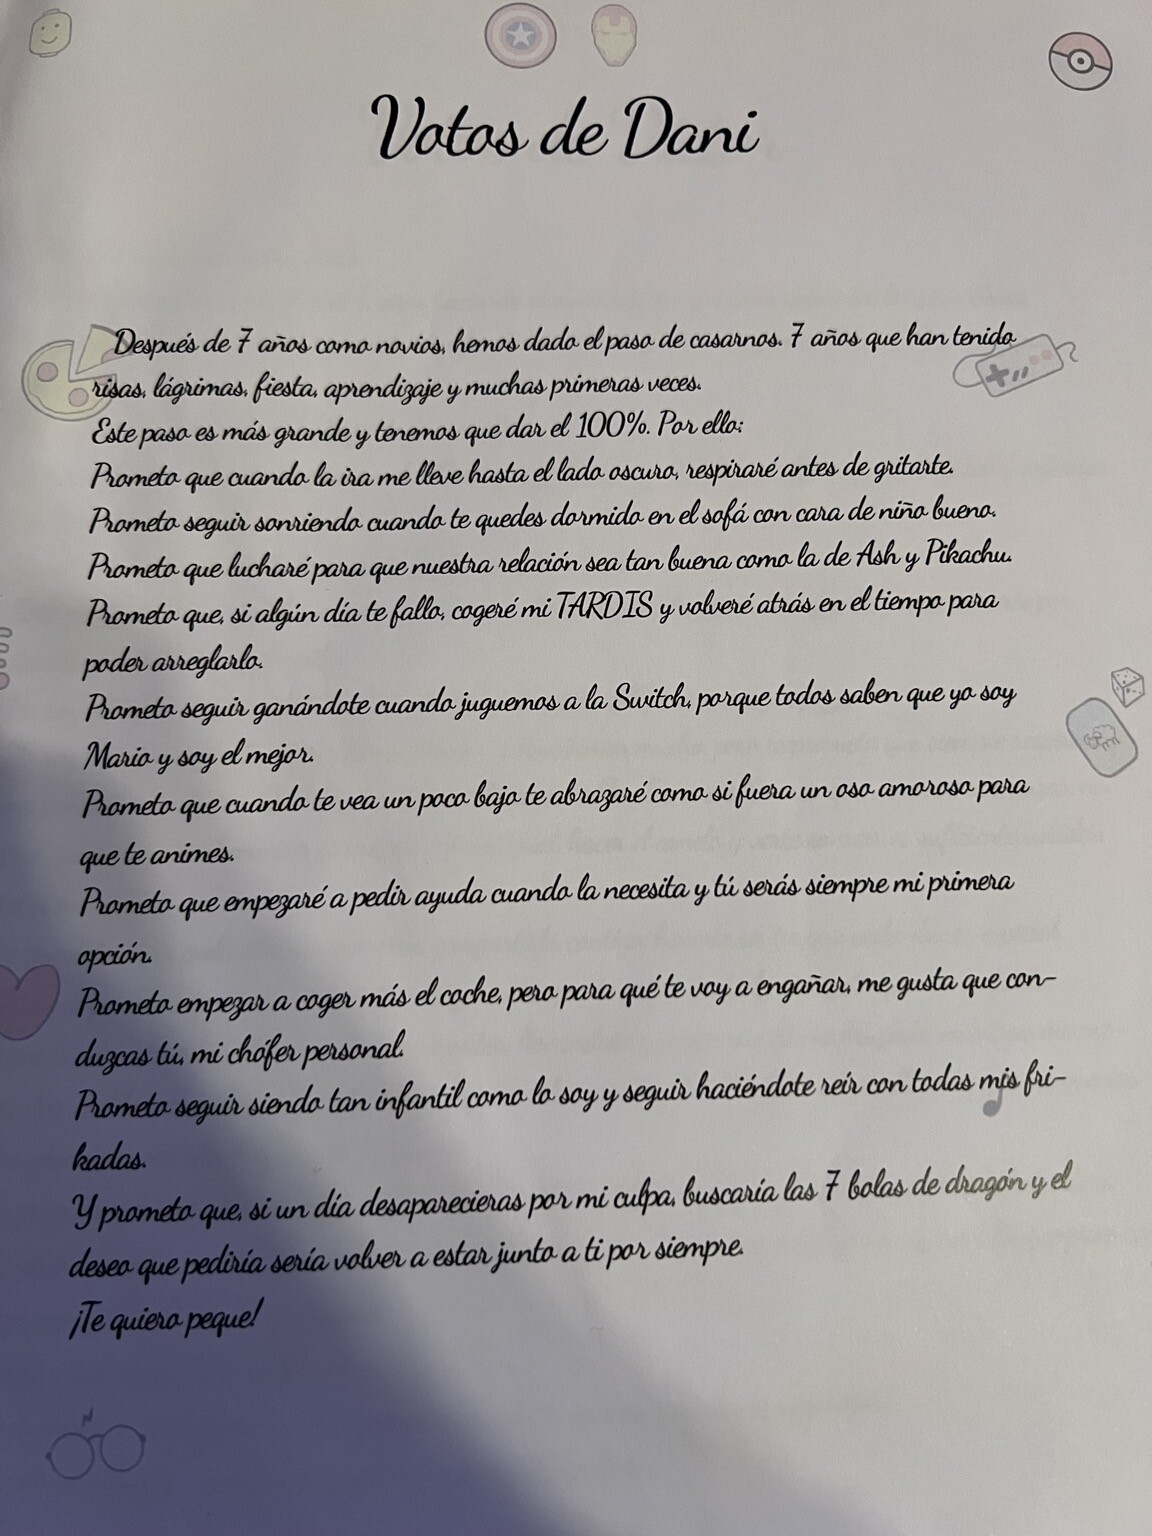 Votos de Dani
Después de 7 años como novios, hemos dado el paso de casarnos. 7 años que han tenido
risas, lágrimas, fiesta, aprendizaje y muchas primeras veces.
Este paso es más grande y tenemos que dar el 100%. Por ello:
Prometo que cuando la ira me lleve hasta el lado oscuro, respiraré antes de gritarte.
Prometo seguir sonriendo cuando te quedes dormido en el sofá con cara de niño bueno.
Prometo que lucharé para que nuestra relación sea tan buena como la de Ash y Pikachu.
Prometo que, si algún día te fallo, cogeré mi TARDIS y volveré atrás en el tiempo para
poder arreglarlo.
Prometo seguir ganándote cuando juguemos a la Switch, porque todos saben que yo soy
Mario y soy el mejor.
Prometo que cuando te vea un poco bajo te abrazaré como si fuera un oso amoroso para
que te animes.
Prometo que empezaré a pedir ayuda cuando la necesita y tú serás siempre mi primera
opción.
Prometo empezar a coger más el coche, pero para qué te voy a engañar, me gusta que con-
duzcas tú, mi chófer personal.
Prometo seguir siendo tan infantil como lo soy y seguir haciéndote reír con todas mis fri-
kadas.
Y prometo que, si un día desaparecieras por mi culpa, buscaría las 7 bolas de dragón y el
deseo que pediría sería volver a estar junto a ti por siempre.
¡Te quiero peque!